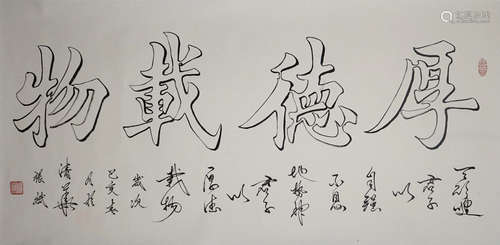 厚德載物
天行健
君子
以
自强
不息
地势坤
君子
以
厚德
载物
岁次
己亥春
月於
清華